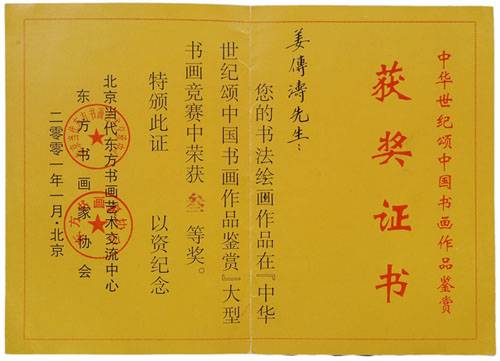 中华世纪颂中国书画作品鉴赏
获奖证书
姜傳涛先生：
您的书法绘画作品在『中华
世纪颂中国书画作品鉴赏』大型
书画竞赛中荣获 叁 等奖。
特颁此证 以资纪念
北京当代东方书画艺术交流中心
东方书画家协会
二零零一年一月·北京